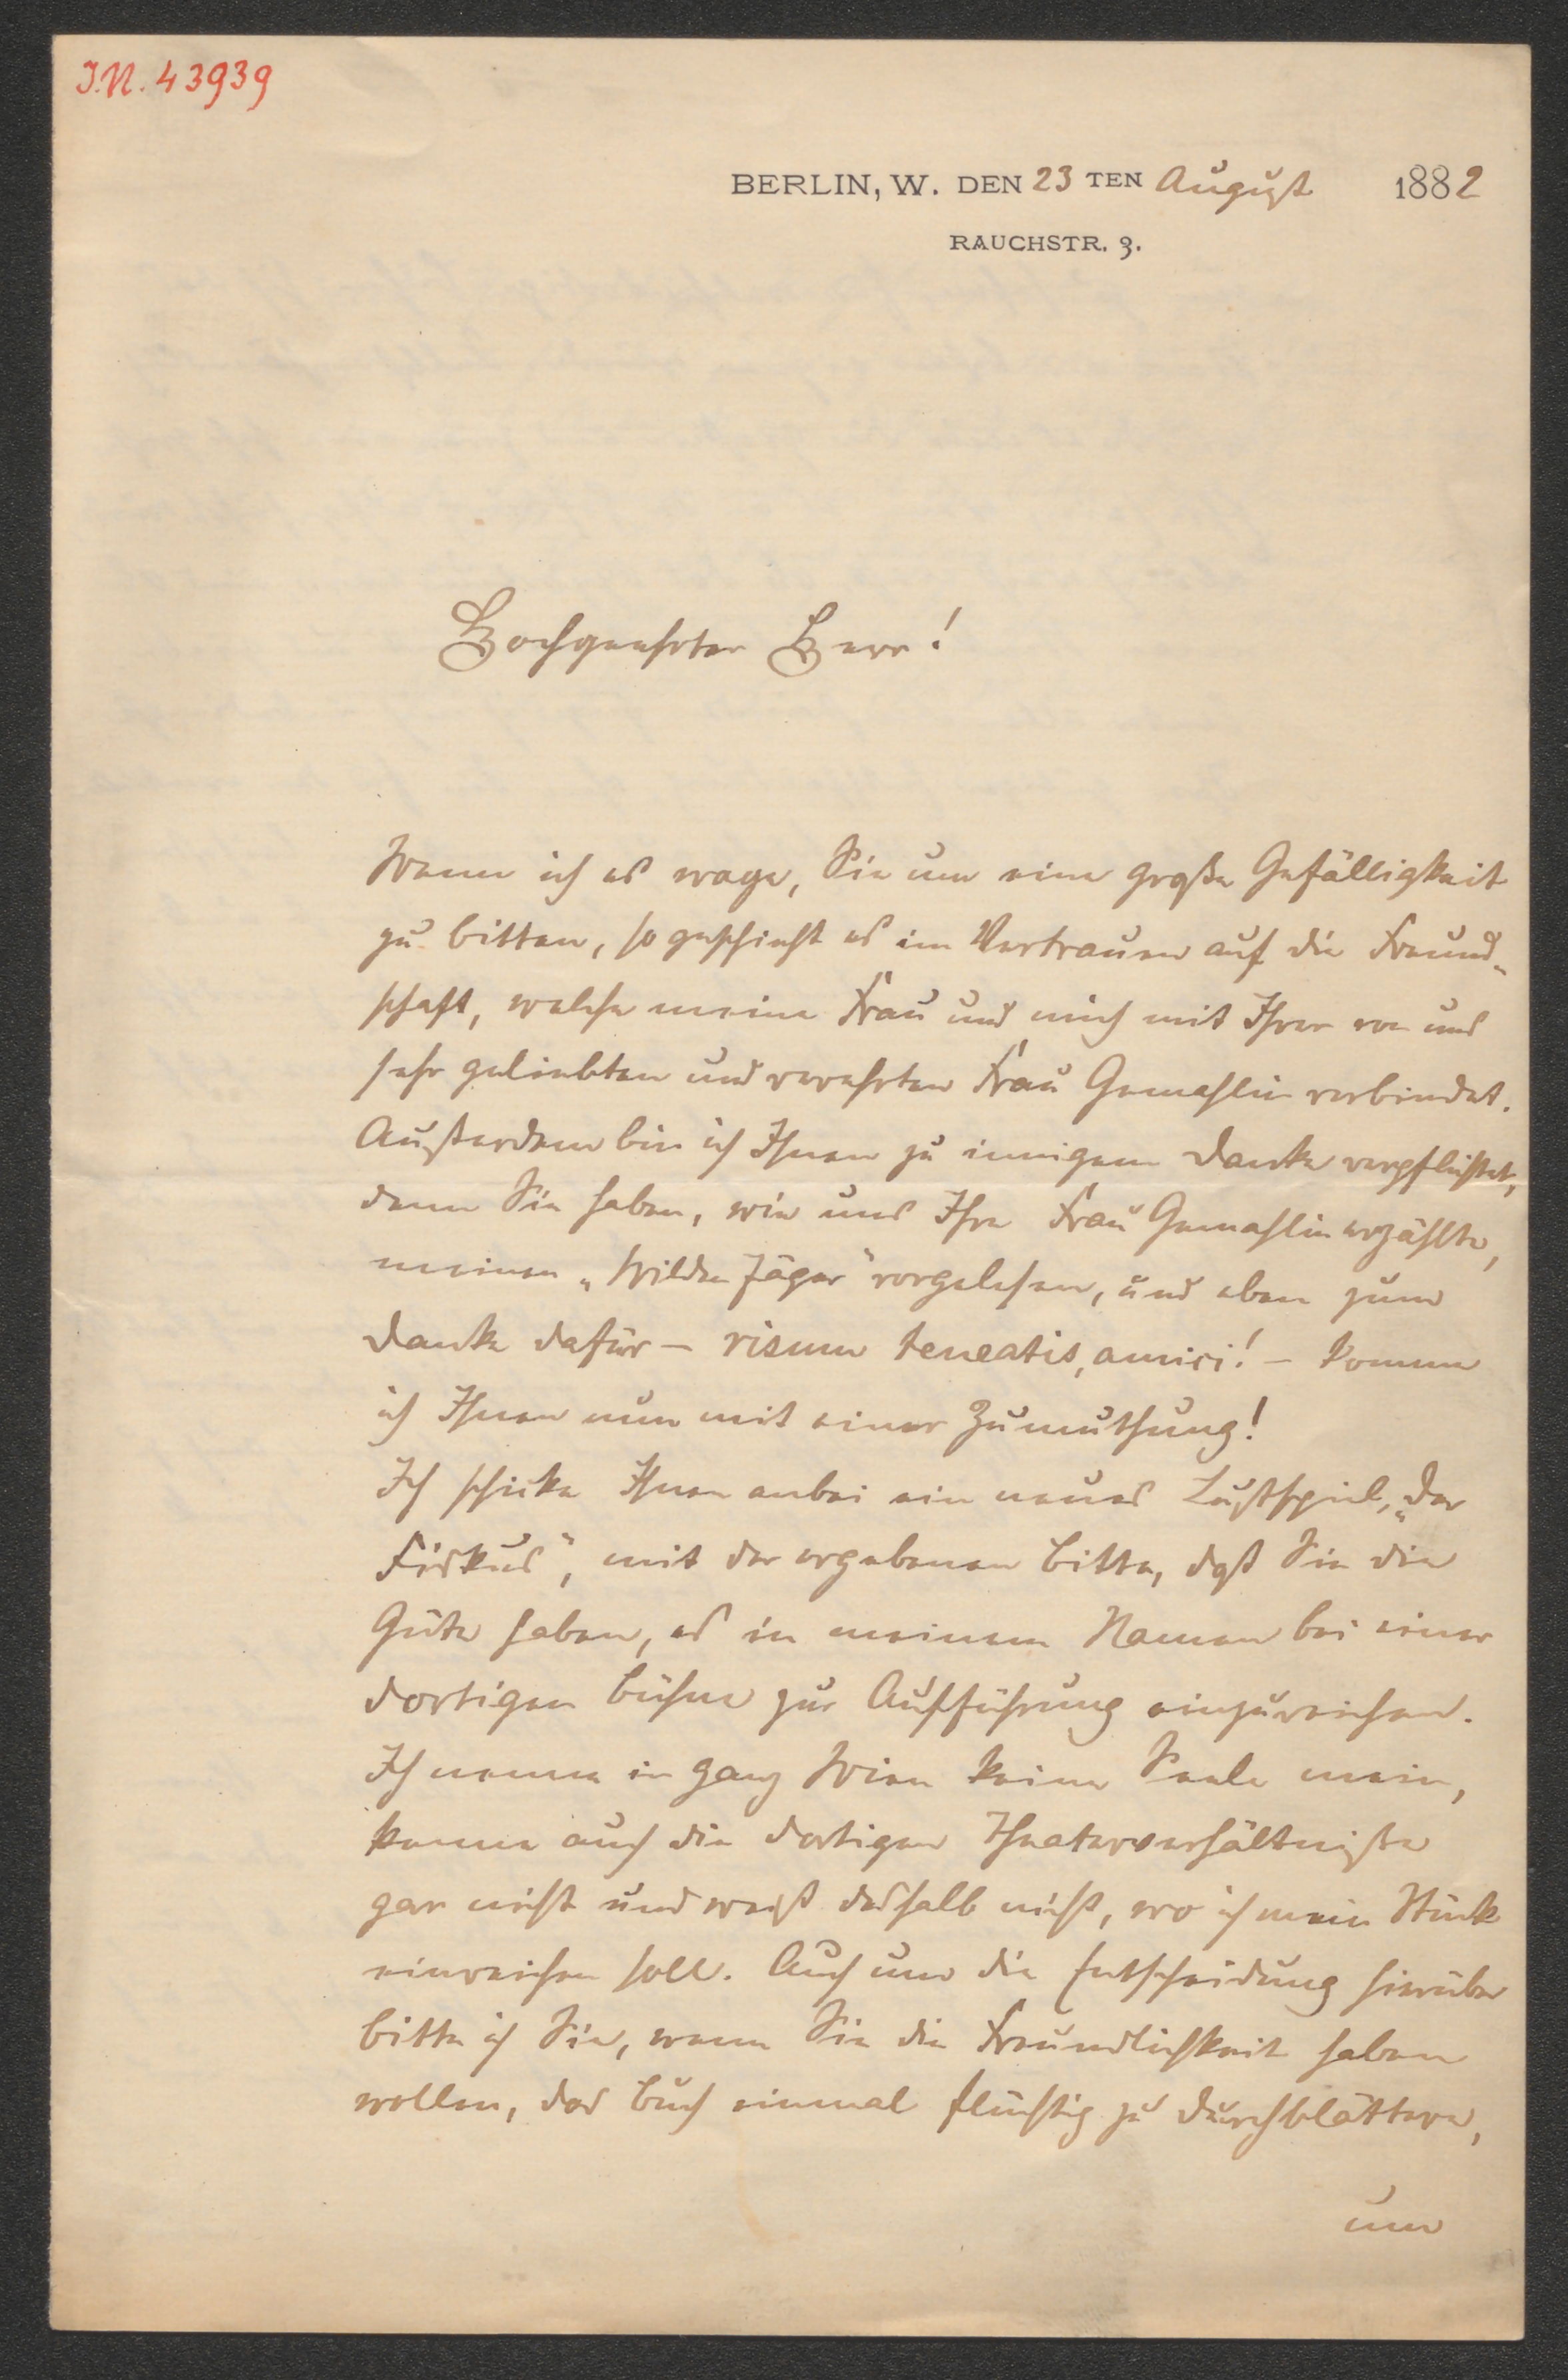 J.N. 43939
BERLIN, W. DEN 23 TEN August 1882
RAUCHSTR. 3.
Hochgeehrter Herr!
Wenn ich es wage, Sie um eine große Gefälligkeit
zu bitten, so geschieht es im Vertrauen auf die Freund-
schaft, welche meine Frau und mich mit Ihrer von uns
sehr geliebten und verehrten Frau Gemahlin verbindet.
Außerdem bin ich Ihnen zu innigem Danke verpflichtet,
denn Sie haben, wie uns Ihre Frau Gemahlin erzählte,
meinen „Wilden Jäger" vorgelesen, und eben zum
Danke dafür – risum teneatis, amici! – komme
ich Ihnen nun mit einer Zumuthung!
Ich schicke Ihnen anbei ein neues Lustspiel, „Der
Fiskus", mit der ergebenen Bitte, daß Sie die
Güte haben, es in meinem Namen bei einer
dortigen Bühne zur Aufführung einzureichen.
Ich nenne in ganz Wien keine Seele mein,
kenne auch die dortigen Theaterverhältniße
gar nicht und weiß deshalb nicht, wo ich mein Stück
einreichen soll. Auch um die Entscheidung hierüber
bitte ich Sie, wenn Sie die Freundlichkeit haben
wollen, das Buch einmal flüchtig zu durchblättern,
um